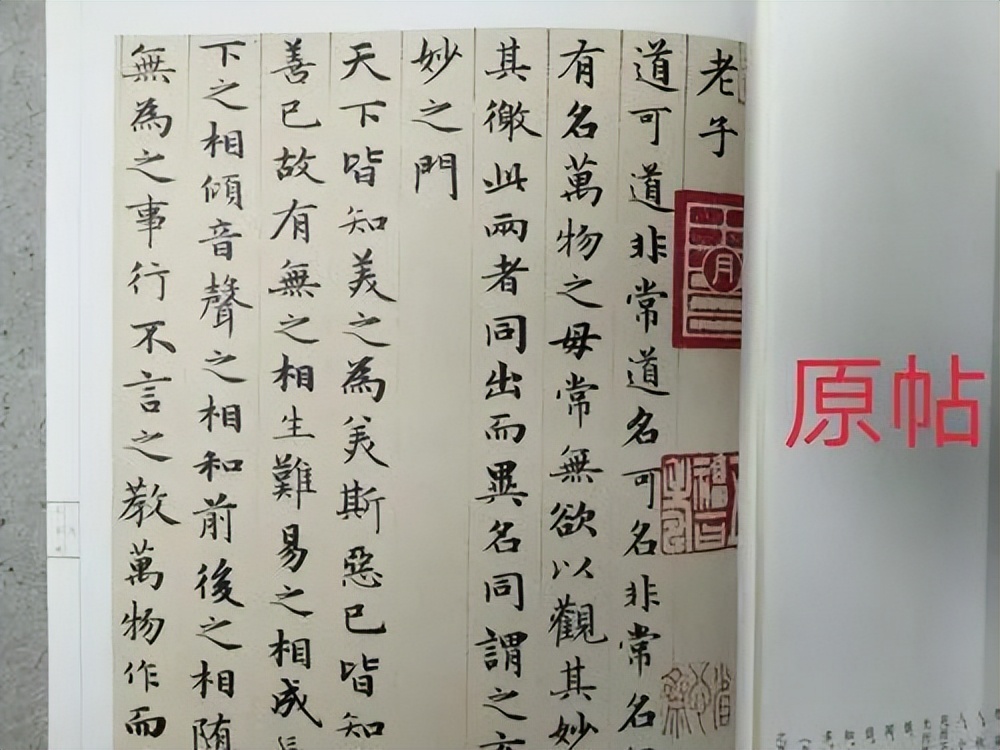 老子
道可道非常道名可名非常名
有名萬物之母常無欲以觀其妙
其徼此兩者同出而異名同謂之玄
妙之門
天下皆知美之為美斯惡已皆知
善已故有無之相生難易之相成長
下之相傾音聲之相和前後之相随
無為之事行不言之教萬物作而
原帖